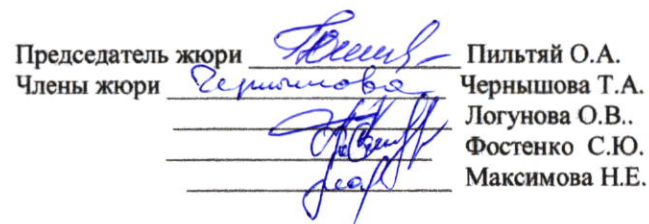 Председатель жюри Пильтяй О.А.
Члены жюри Чернышова Чернышова Т.А.
Логунова О.В..
Фостенко С.Ю.
Максимова Н.Е.